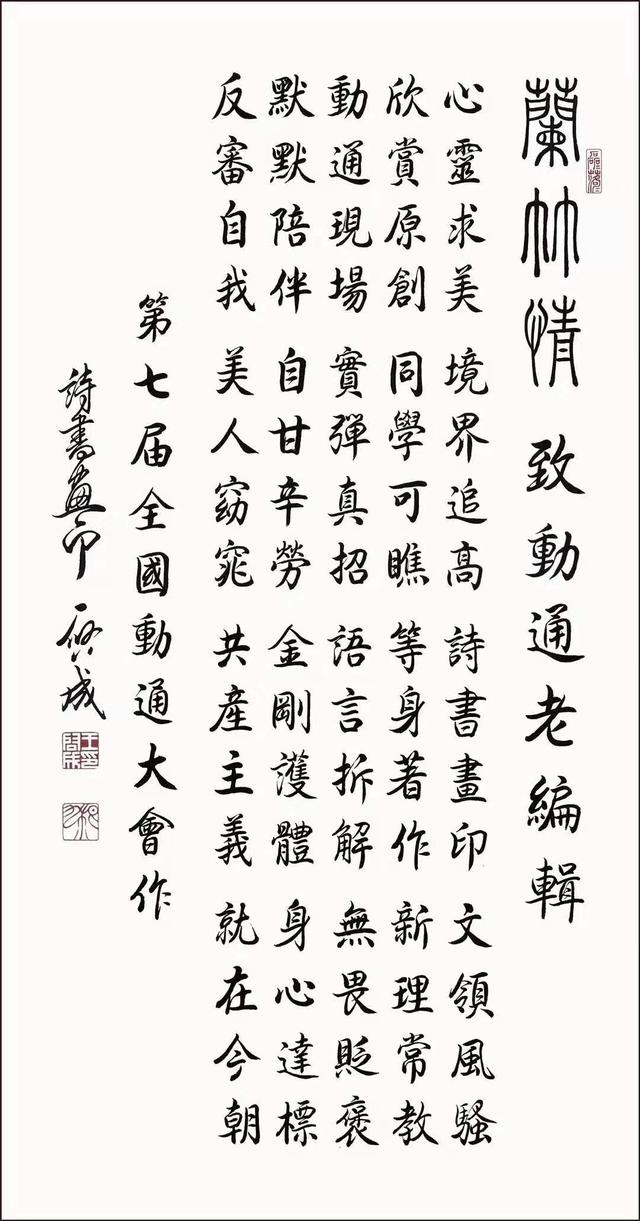 蘭竹情 致動通老編輯
心靈求美 境界追高 詩書畫印 文領風騷
欣賞原創 同學可瞧 等身著作 新理常教
動通現場 實彈真招 語言拆解 無畏貶褒
默默陪伴 自甘辛勞 金剛護體 身心達標
反審自我 美人窈窕 共產主義 就在今朝
第七届全國動通大會作
詩書畫印